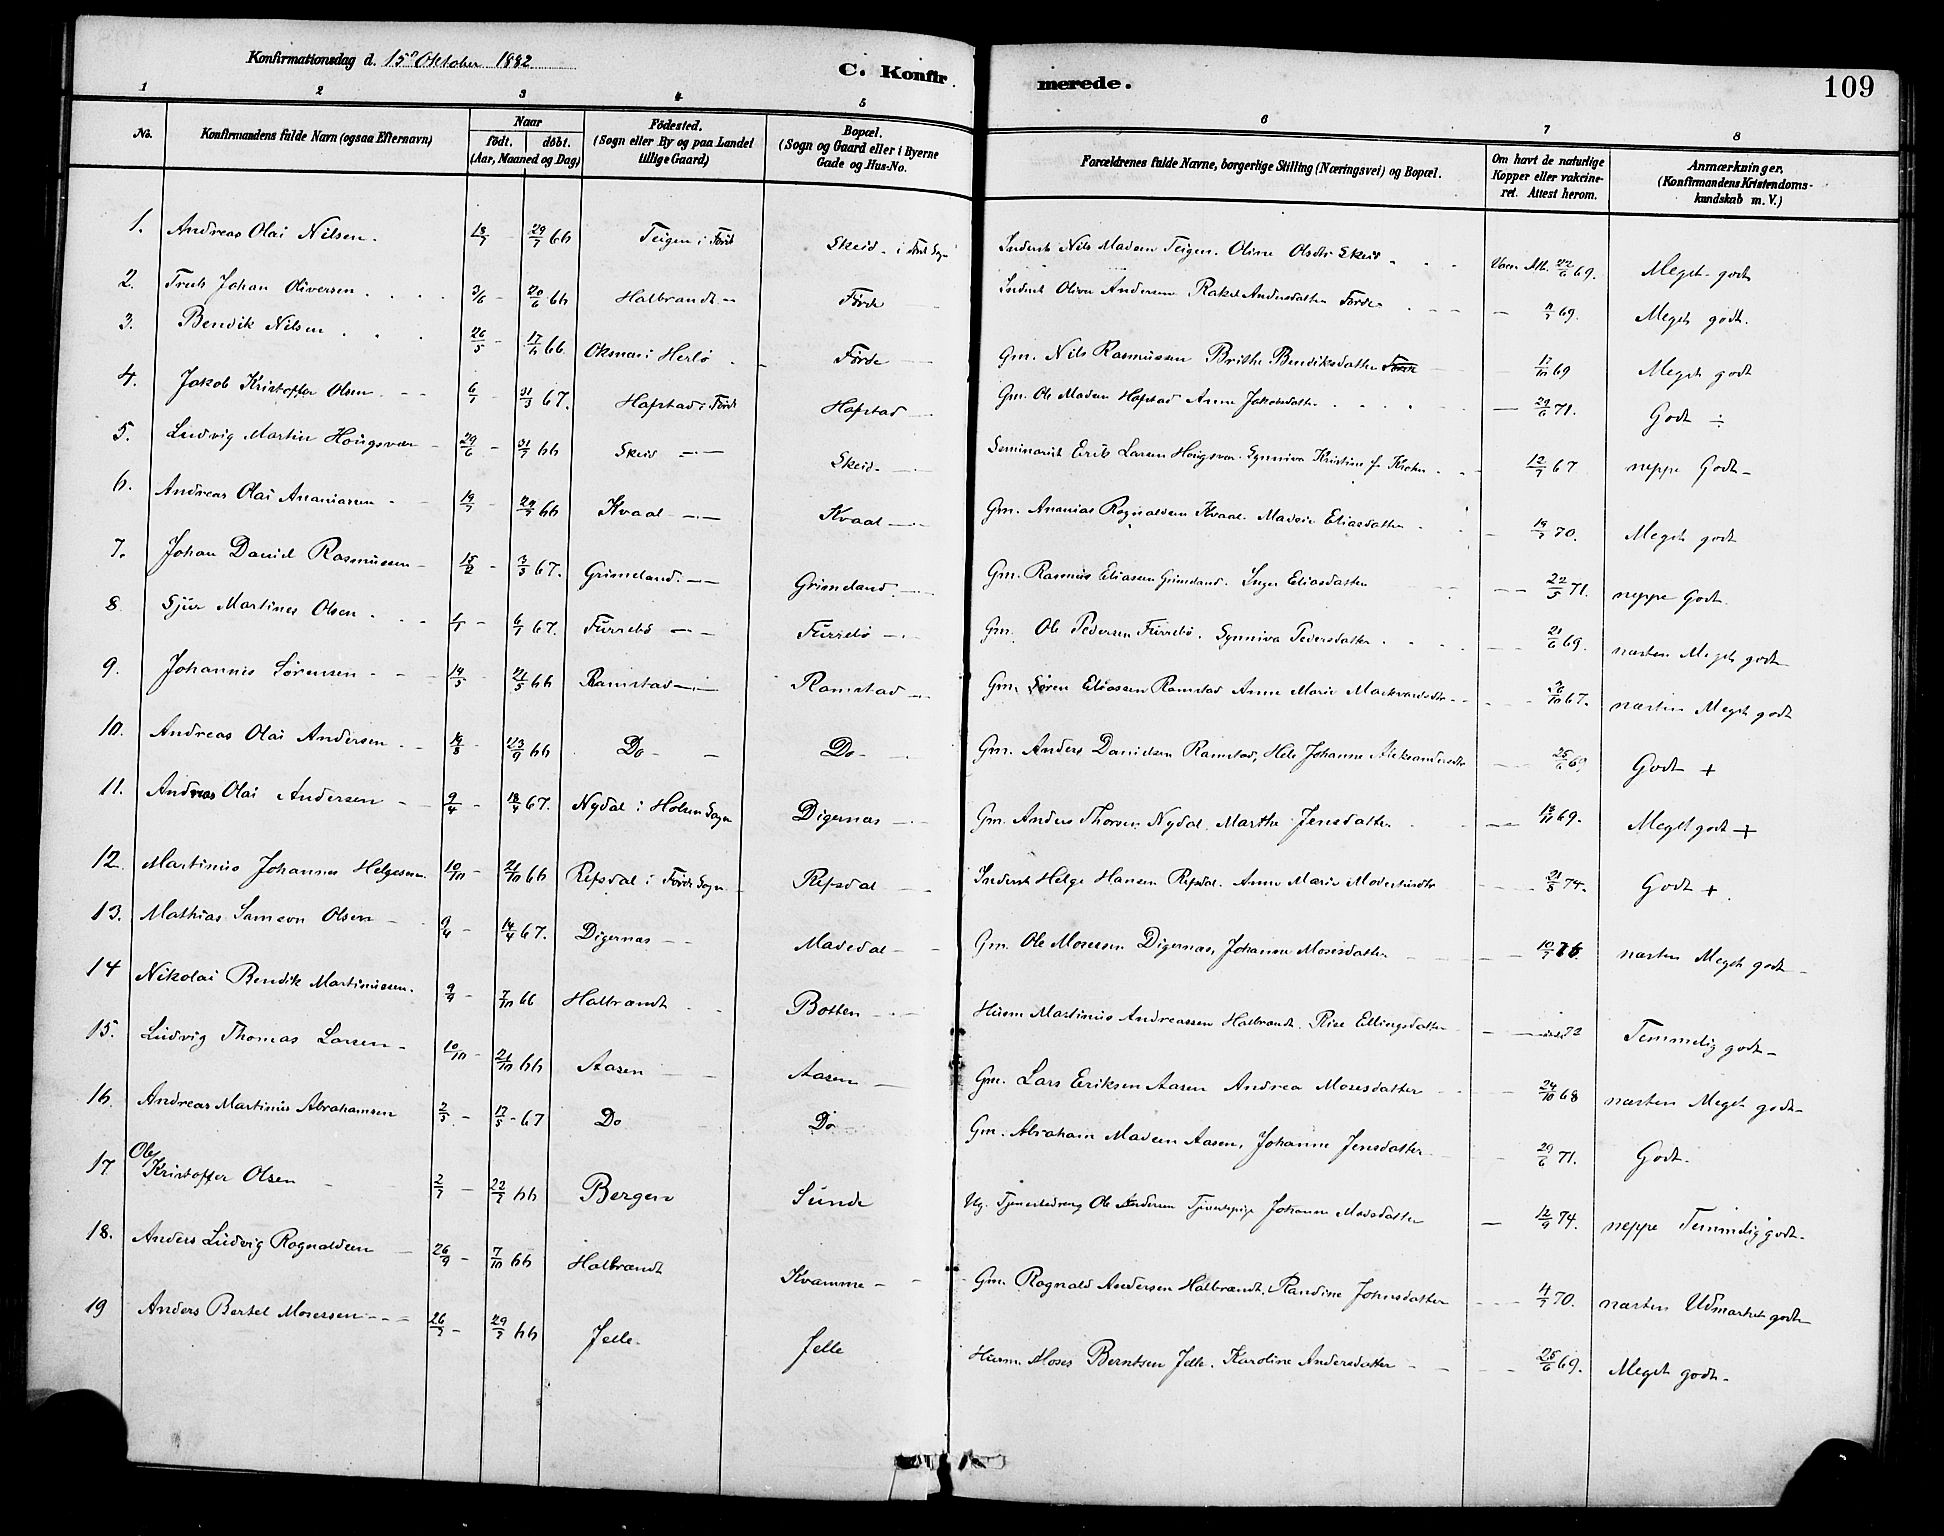 Konfirmationsdag d. 15de Oktober 1882
C. Konfirmerede.
109
1 2 3 4 5 6 7 8
No. Konfirmandens fulde Navn (ogsaa Efternavn) Naar født. døbt. (Aar, Maaned og Dag) Fødested. (Sogn eller By og paa Landet tillige Gaard) Bopæl. (Sogn og Gaard eller i Byerne Gade og Hus-No. Forældrenes fulde Navne, borgerlige Stilling (Næringsvei) og Bopæl. Om havt de naturlige Kopper eller vakcineret. Attest herom. Anmærkninger, (Konfirmandens Kristendomskundskab m. V.)
1. Andreas Olai Nilsen. 18/7 29/7 66 Teigen i Førde Skeid i Førde Sogn Inderst Nils Madsen Teigen. Oline Olsdtr Skeid Vacc. Att. 22/6 69. Meget godt
2. Truls Johan Oliversen 3/6 20/6 66 Halbrandt Førde Inderst Oliver Andersen Rakel Andersdatter Førde 69. Meget godt.
3. Bendik Nilsen 26/5 17/6 66. Oksnæs i Herlø Førde Gm. Nils Rasmussen Brithe Bendiksdatter Førde 17/10 69 Meget godt
4. Jakob Kristoffer Olsen 6/1 31/3 67. Hafstad i Førde Hafstad Gm. Ole Madsen Hafstad Anne Jakobsdatter 29/6 71. Godt ÷
5. Ludvig Martin Hougsvær 29/6 31/7 66 Skeid Skeid Seminarist Erik Larsen Hougsvær. Synniva Kristine f. Krohn 12/7 67 neppe Godt
6. Andreas Olai Ananiassen 19/7 29/7 66 Kvaal Kvaal Gm. Ananias Rognaldsen Kvaal. Madsie Eliasdatter 19/7 70. Meget godt
7. Johan Daniel Rasmussen 15/2 3/3 67. Grimeland Grimeland Gm. Rasmus Eliassen Grimeland. Inger Eliasdatter 22/5 71. neppe Godt.
8 Sjur Martines Olsen 1/1 6/1 67. Furrebø Furrebø Gm. Ole Pedersen Furrebø. Synniva Pedersdatter 21/6 69. næsten Meget godt
9. Johannes Sørensen 14/5 21/5 66 Ramstad Ramstad Gm. Søren Eliassen Ramstad Anne Marie Markvardsdtr 67. næsten Meget godt
10. Andreas Olai Andersen 19/8 23/9 66 Do Do Gm. Anders Danielsen Ramstad, Hele Johanne Aleksandersdtr 25/6 69 Godt +
11. Andreas Olai Andersen 9/4 18/4 67. Nydal i Holsen Sogn Digernæs Gm. Anders Thorsen Nydal. Marthe Jensdatter 69. Meget godt +
12. Martinus Johannes Helgesen 10/10 21/10 66 Refsdal i Førde Sogn Refsdal Inderst Helge Hansen Refsdal. Anne Marie Modestusdtr 21/8 74. Godt +
13. Mathias Simeon Olsen 9/4 14/4 67. Digernæs Mavedal Gm. Ole Mosesen Digernæs, Johanne Mosesdatter 10/7 næsten Meget godt
14 Nikolai Bendik Martinussen. 9/9 7/10 66 Halbrandt Botten Husm Martinus Andreassen Halbrandt. Rise Ellingsdatter 72 Temmelig godt
15. Ludvig Thomas Larsen 10/10 21/10 66 Aasen Aasen Gm. Lars Eriksen Aasen Andrea Mosesdatter 24/10 68 næsten Meget godt
16. Andreas Martinus Abrahamsen 2/5 12/5 67 Do Do Gm. Abraham Madsen Aasen, Johanne Jensdatter 29/6 71. Godt.
17. Ole Kristoffer Olsen 2/7 22/7 66 Bergen Sunde Ug. Tjenestedreng Ole Andersen Tjenestepige Johanne Madsdatter 12/9 74. neppe Temmelig godt
18. Anders Ludvig Rognaldsen 26/9 7/10 66 Halbrandt Kvamme Gm. Rognald Andersen Halbrandt. Randine Johnsdatter 4/7 70. næsten Udmærket godt
19 Anders Bertel Mosessen 26/7 29/7 66 Jelle Jelle Husm. Moses Berntsen Jelle. Karoline Andersdatter 25/6 69. Meget godt